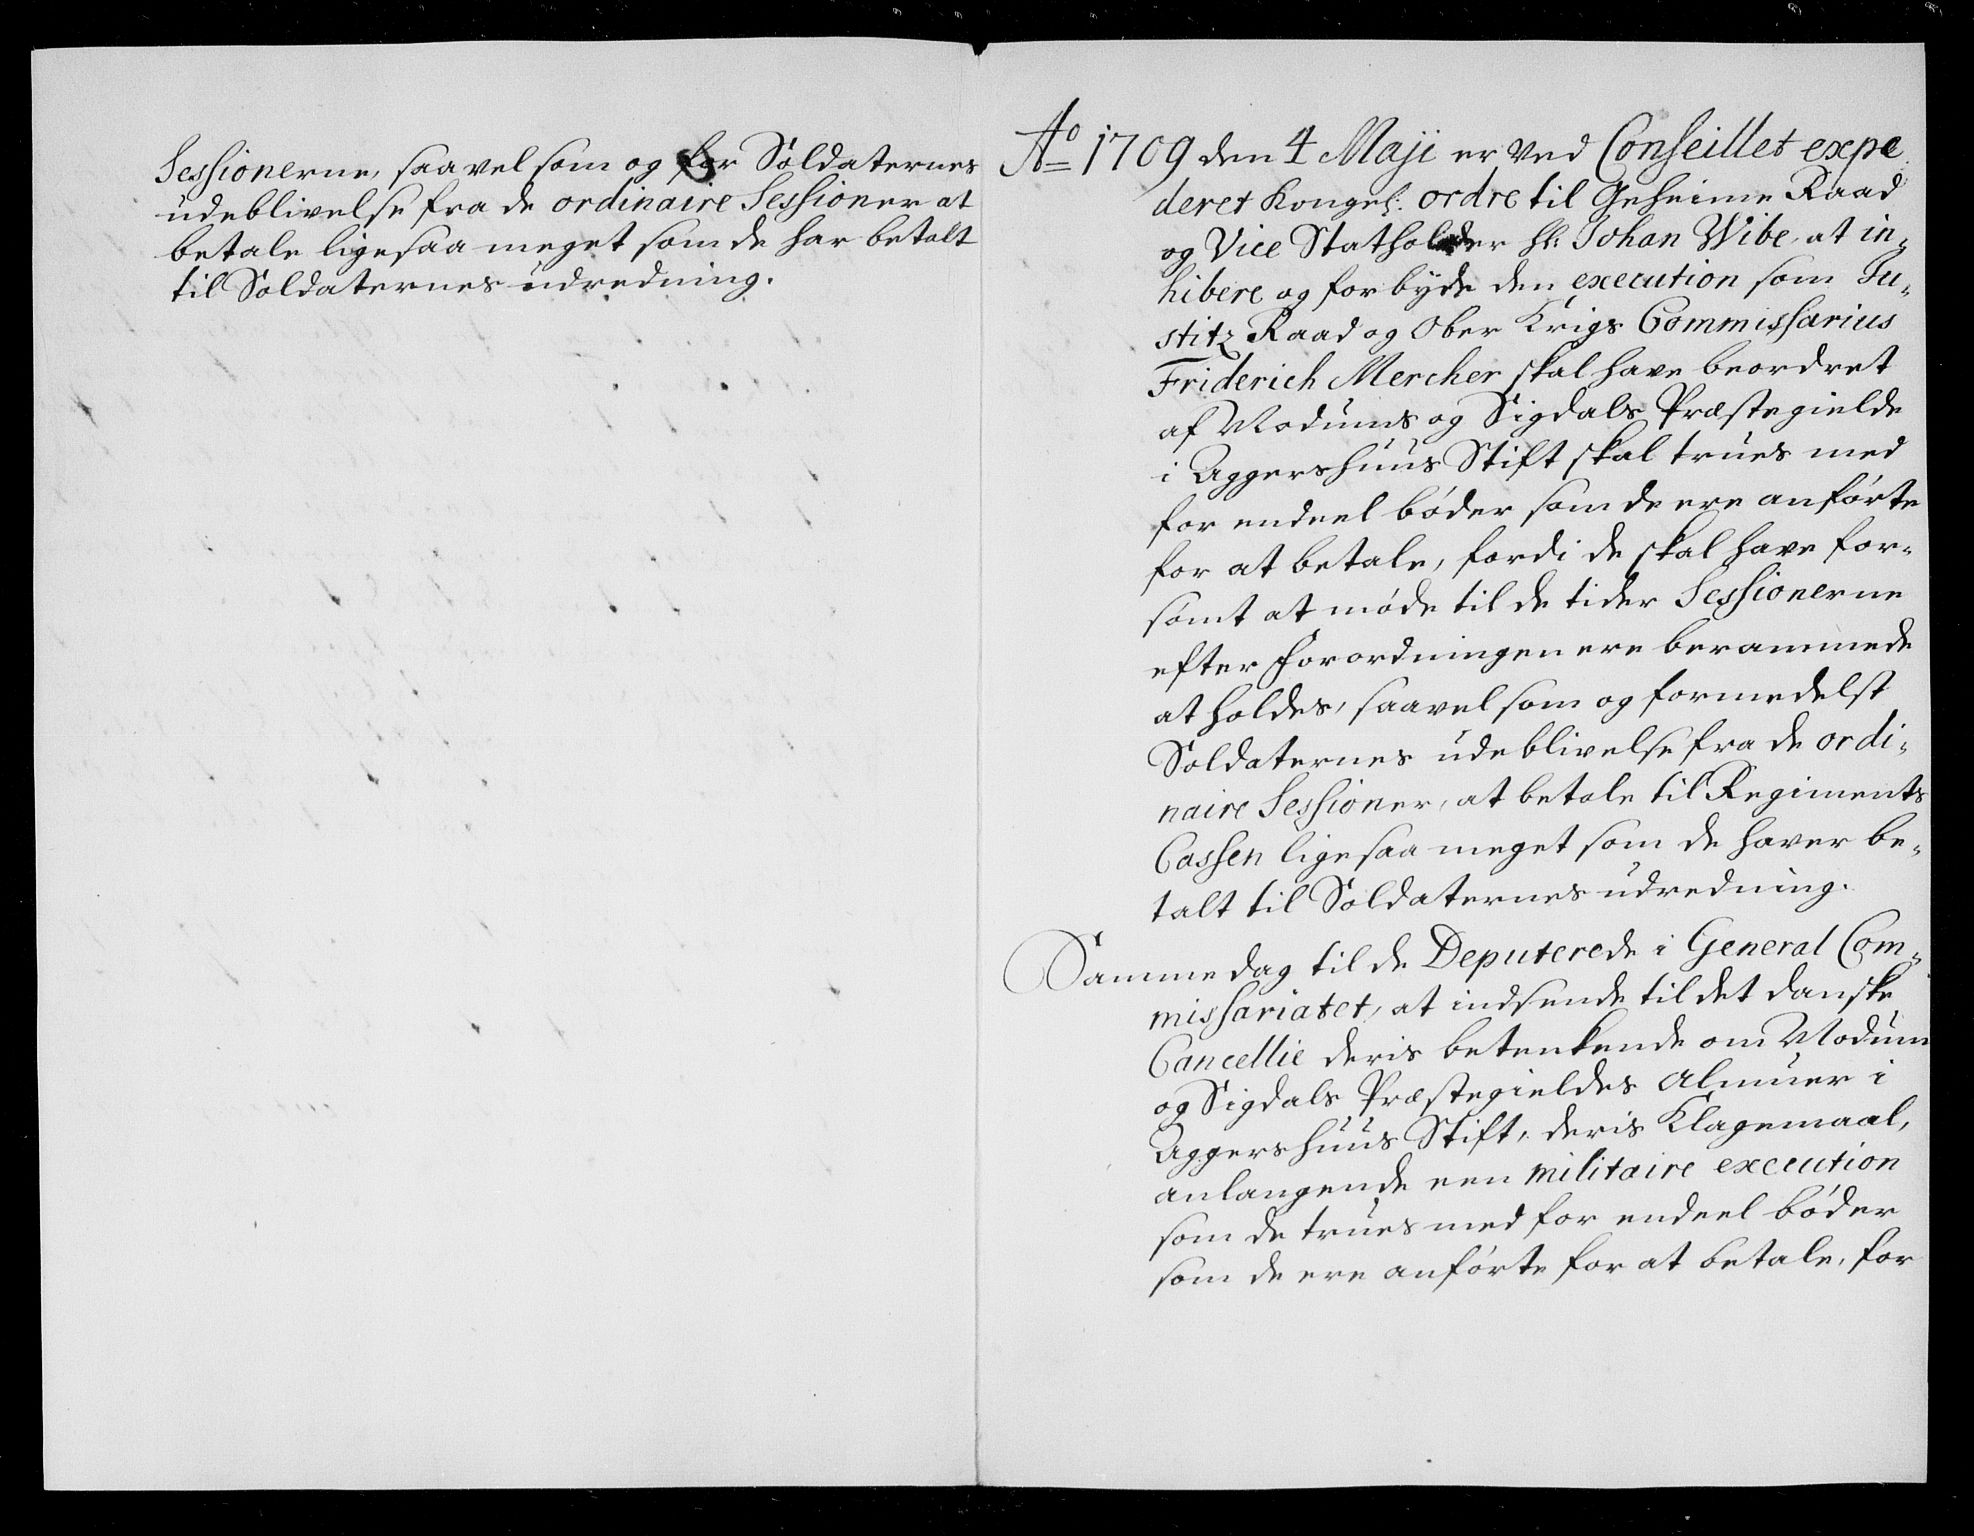 Sessionerne, saavelsom og for Soldaternes
udeblivelse fra de ordinaire Sessioner at
betale ligesaa meget som de har betalt
til Soldaternes udredning.
Ao 1709 den 4 Maji er ved Conseillet expe
deret Kongel: ordre til Geheime Raad
og Vice Statholder Hr: Johan Wibe, at in-
hibere og forbyde den execution som Ju-
stitz Raad og Ober Krigs Commissarius
Friderich Mercher skal have beordret
af Modums og Sigdals Præstegielde
i Aggershuus Stift skal trues med
for endeel bøder som de ere anførte
for at betale, fordi de skal have for-
sømt at møde til de tider Sessionerne
efter Forordningen ere berammede
at holdes, saavelsom og formedelst
Soldaternes udeblivelse fra de ordi-
naire Sessioner, at betale til Regiments
Cassen ligesaa meget som de haver be-
talt til Soldaternes udredning.
Samme dag til de Deputerede i General Com-
missariatet, at indsende til det danske
Cancellie deris betenkende om Modum
og Sigdals Præstegieldes Almuer i
Aggershuus Stift, deris Klagemaal,
anlangende een militaire execution
som de trues med for endeel bøder
som de ere anførte for at betale, for